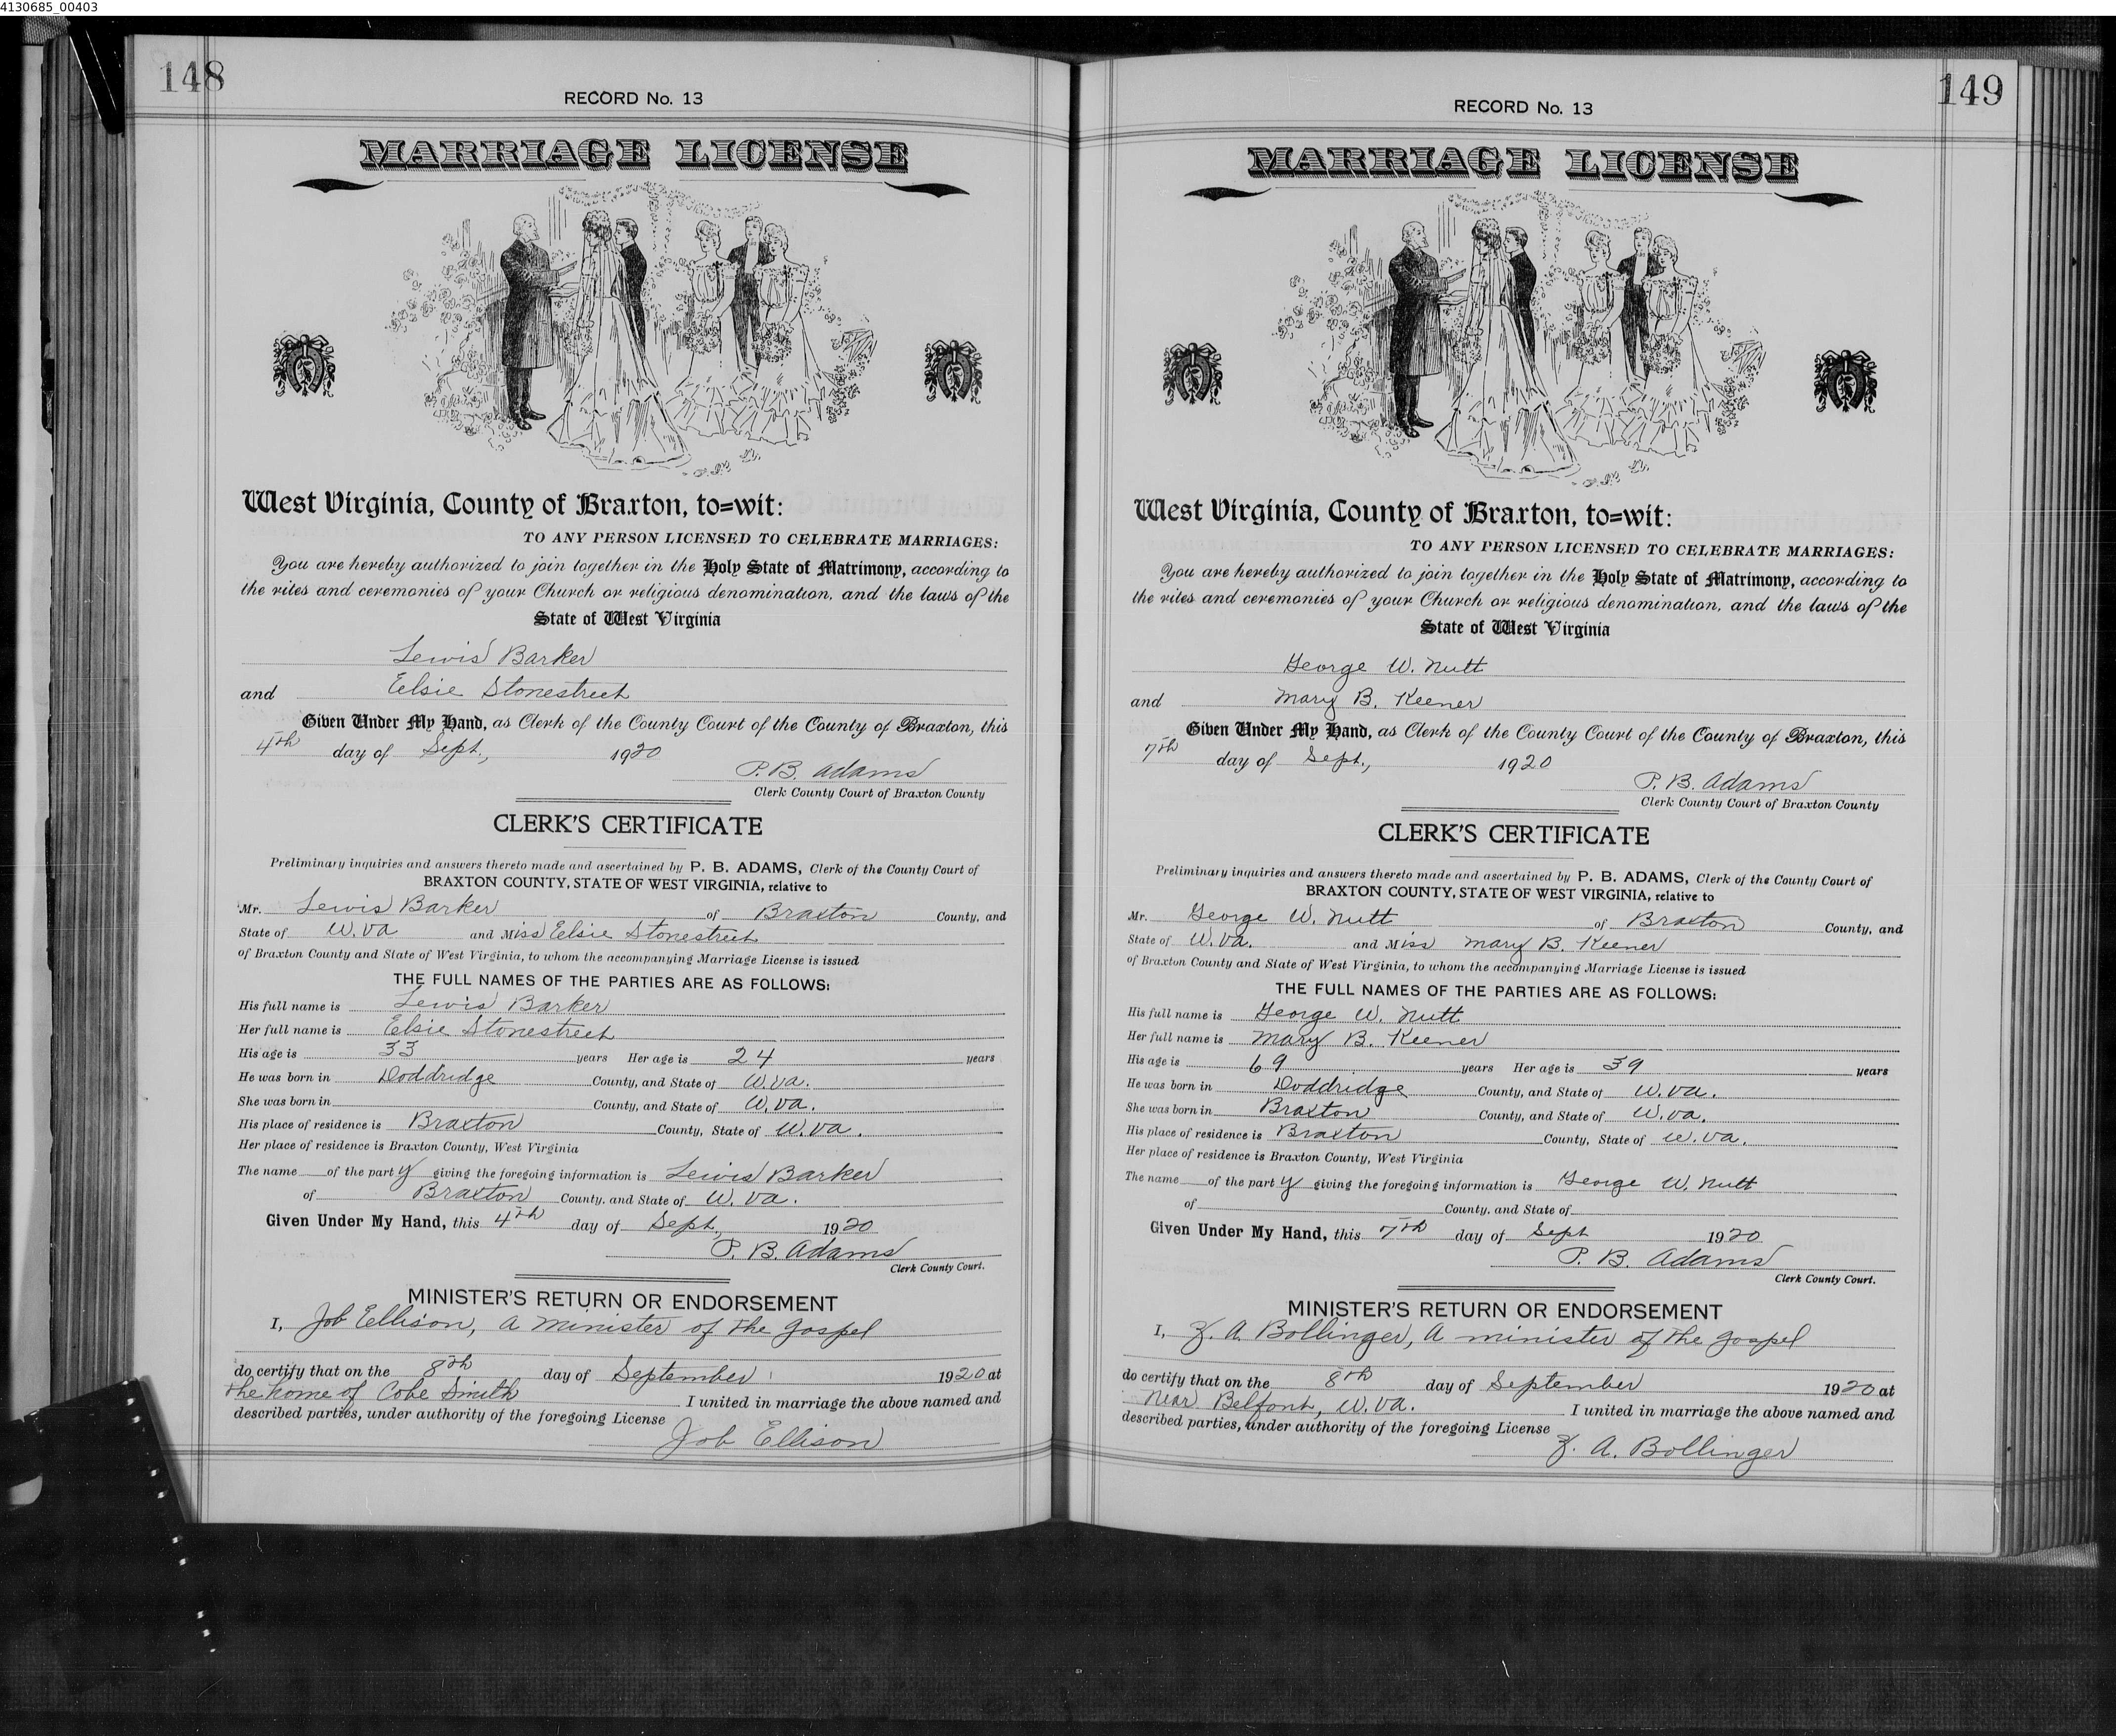 4130685_00403
148
RECORD No. 13
MARRIAGE LICENSE
West Virginia, County of Braxton, to=wit:
TO ANY PERSON LICENSED TO CELEBRATE MARRIAGES:
You are hereby authorized to join together in the Holy State of Matrimony, according to
the rites and ceremonies of your Church or religious denomination, and the laws of the
State of West Virginia
Lewis Barker
and Eelsie Stonestreet
Given Under My Hand, as Clerk of the County Court of the County of Braxton, this
4th day of Sept., 1920
P. B. Adams
Clerk County Court of Braxton County
CLERK'S CERTIFICATE
Preliminary inquiries and answers thereto made and ascertained by P. B. ADAMS, Clerk of the County Court of
BRAXTON COUNTY, STATE OF WEST VIRGINIA, relative to
Mr. Lewis Barker of Braxton County, and
State of W. Va and Miss Eelsie Stonestreet
of Braxton County and State of West Virginia, to whom the accompanying Marriage License is issued
THE FULL NAMES OF THE PARTIES ARE AS FOLLOWS:
His full name is Lewis Barker
Her full name is Elsie Stonestreet
His age is 33 years Her age is 24 years
He was born in Doddridge County, and State of W. Va.
She was born in County, and State of W. Va.
His place of residence is Braxton County, State of W. Va.
Her place of residence is Braxton County, West Virginia
The name of the party giving the foregoing information is Lewis Barker
of Braxton County, and State of W. Va.
Given Under My Hand, this 4th day of Sept., 1920
P. B. Adams
Clerk County Court.
MINISTER'S RETURN OR ENDORSEMENT
I, Job Ellison, a minister of the gospel
do certify that on the 8th day of September 1920 at
the home of Cobe Smith I united in marriage the above named and
described parties, under authority of the foregoing License
Job Ellison
149
RECORD No. 13
MARRIAGE LICENSE
West Virginia, County of Braxton, to=wit:
TO ANY PERSON LICENSED TO CELEBRATE MARRIAGES:
You are hereby authorized to join together in the Holy State of Matrimony, according to
the rites and ceremonies of your Church or religious denomination, and the laws of the
State of West Virginia
George W. Nutt
and Mary B. Keener
Given Under My Hand, as Clerk of the County Court of the County of Braxton, this
7th day of Sept., 1920
P. B. Adams
Clerk County Court of Braxton County
CLERK'S CERTIFICATE
Preliminary inquiries and answers thereto made and ascertained by P. B. ADAMS, Clerk of the County Court of
BRAXTON COUNTY, STATE OF WEST VIRGINIA, relative to
Mr. George W. Nutt of Braxton County, and
State of W. Va. and Miss Mary B. Keener
of Braxton County and State of West Virginia, to whom the accompanying Marriage License is issued
THE FULL NAMES OF THE PARTIES ARE AS FOLLOWS:
His full name is George W. Nutt
Her full name is Mary B. Keener
His age is 69 years Her age is 39 years
He was born in Doddridge County, and State of W. Va.
She was born in Braxton County, and State of W. Va.
His place of residence is Braxton County, State of W. Va.
Her place of residence is Braxton County, West Virginia
The name of the party giving the foregoing information is George W. Nutt
of County, and State of
Given Under My Hand, this 7th day of Sept 1920
P. B. Adams
Clerk County Court.
MINISTER'S RETURN OR ENDORSEMENT
I, Z. A. Bollinger, A minister of the gospel
do certify that on the 8th day of September 1920 at
Near Belfont, W. Va. I united in marriage the above named and
described parties, under authority of the foregoing License
Z. A. Bollinger